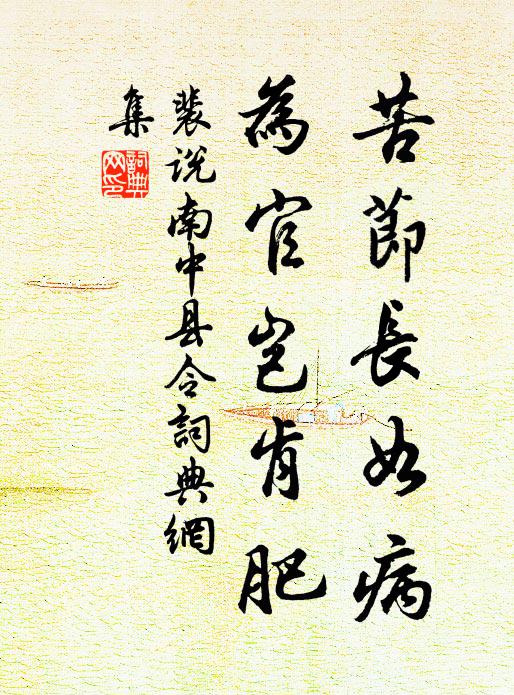 苦節長如病
為官豈肯肥
裴説南中县令詞典網
集
詞典
网印